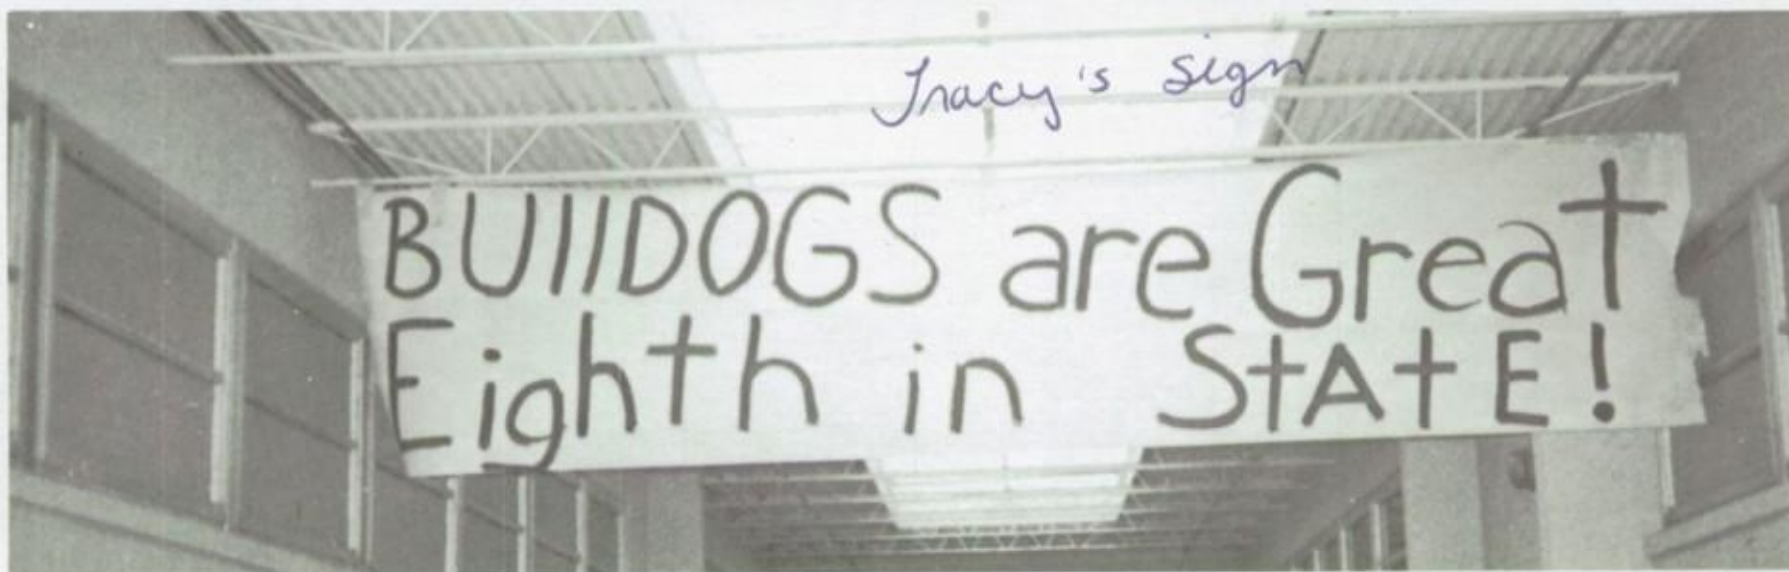 Tracy's sign
BUllDOGS are Great
Eighth in StAtE!